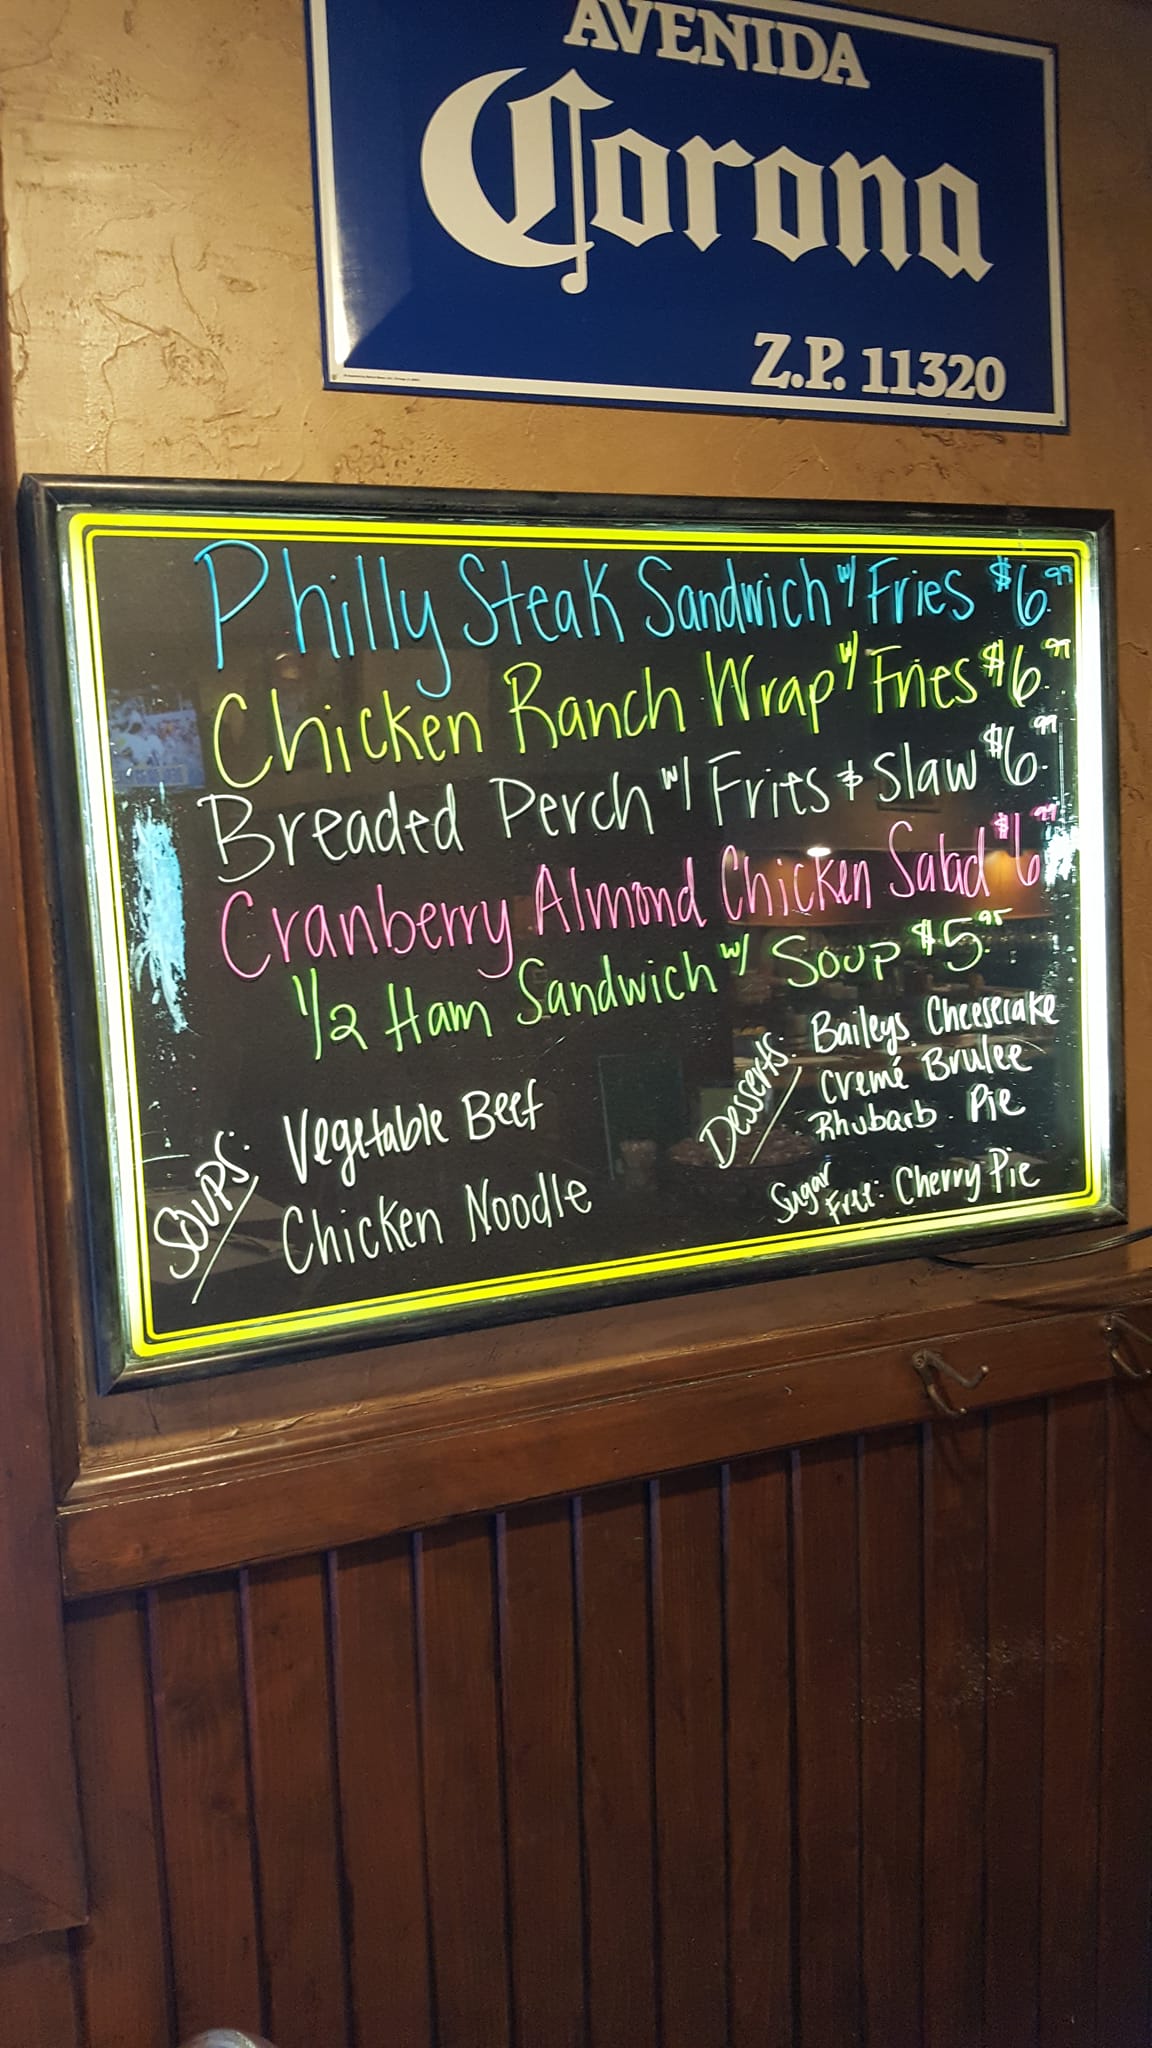 AVENIDA
Corona
Z.P. 11320
Philly Steak Sandwich w/ Fries $6.99
Chicken Ranch Wrap w/ Fries $6.99
Breaded Perch w/ Fries & Slaw $6.99
Cranberry Almond Chicken Salad $6.99
1/2 Ham Sandwich w/ Soup $5.95
Soups:
Vegetable Beef
Chicken Noodle
Desserts:
Baileys Cheesecake
Cremé Brulee
Rhubarb Pie
Sugar Free: Cherry Pie